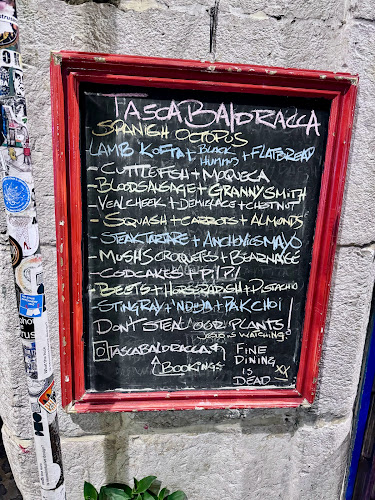 TASCA BALDRACCA
SPANISH OCTOPUS
LAMB KOFTA + BLACK HUMMUS + FLATBREAD
- CUTTLEFISH + MOQUECA
- BLOODSAUSAGE + GRANNY SMITH
VEALCHEEK + DEMIGLACE + CHESTNUT
- SQUASH + CARROTS + ALMONDS
STEAKTARTARE + ANCHOVIES MAYO
- MUSHS CROQUETES + BEARNAISE
- CODCAKES + PIPI
+ BEETS + HORSERADISH + PISTACHIO
STINGRAY + 'NDUJA + PAK CHOI
DON'T STEAL OUR PLANTS!
JESUS IS WATCHING!
TASCABALDRACCA
BOOKINGS
FINE
DINING
IS
DEAD XX